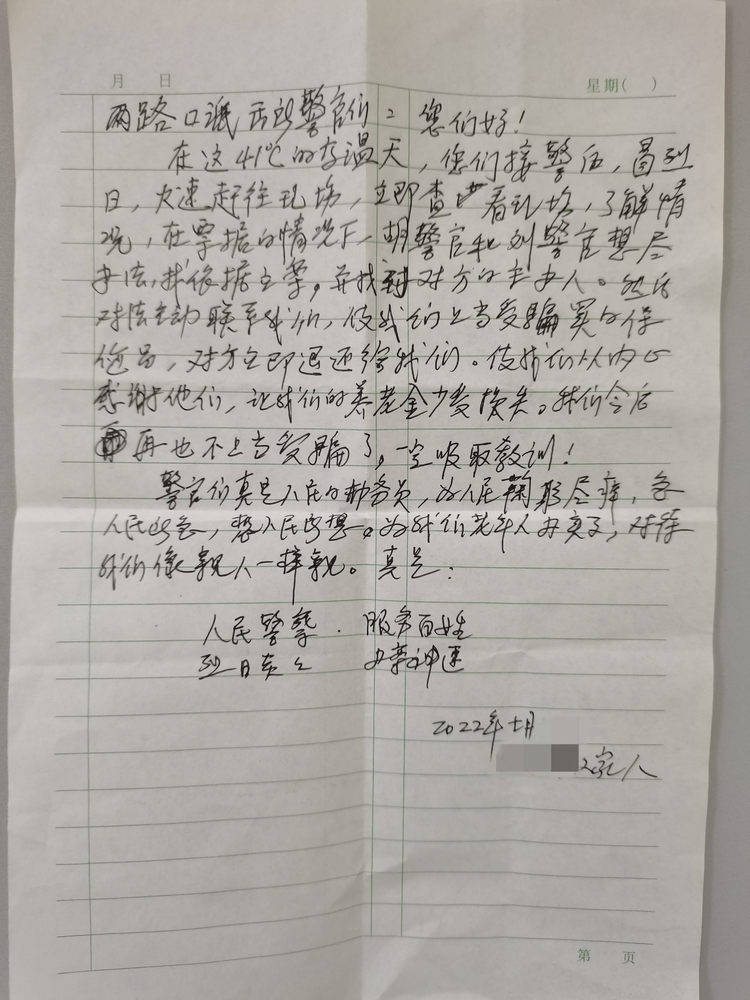 月 日 星期( )
两路口派出所警官们：您们好！
在这41℃的高温天，您们接警后，冒烈
日，火速赶往现场，立即查看现场，了解情
况，在掌据的情况下，胡警官和刘警官想尽
办法，找依据立案，并找到对方的主办人。然后
对法主动联系我们，使我们上当受骗买的保
健品，对方立即退还给我们。使我们从内心
感谢他们，让我们的养老金少受损失。我们今后
再也不上当受骗了，一定吸取教训！
警官们真是人民的勤务员，为人民鞠躬尽瘁，急
人民所急，想人民所想。为我们老年人办实事，对待
我们像亲人一样亲。真是：
人民警察．服务百姓
烈日炎炎 办案神速
2022年七月
家人
第 页